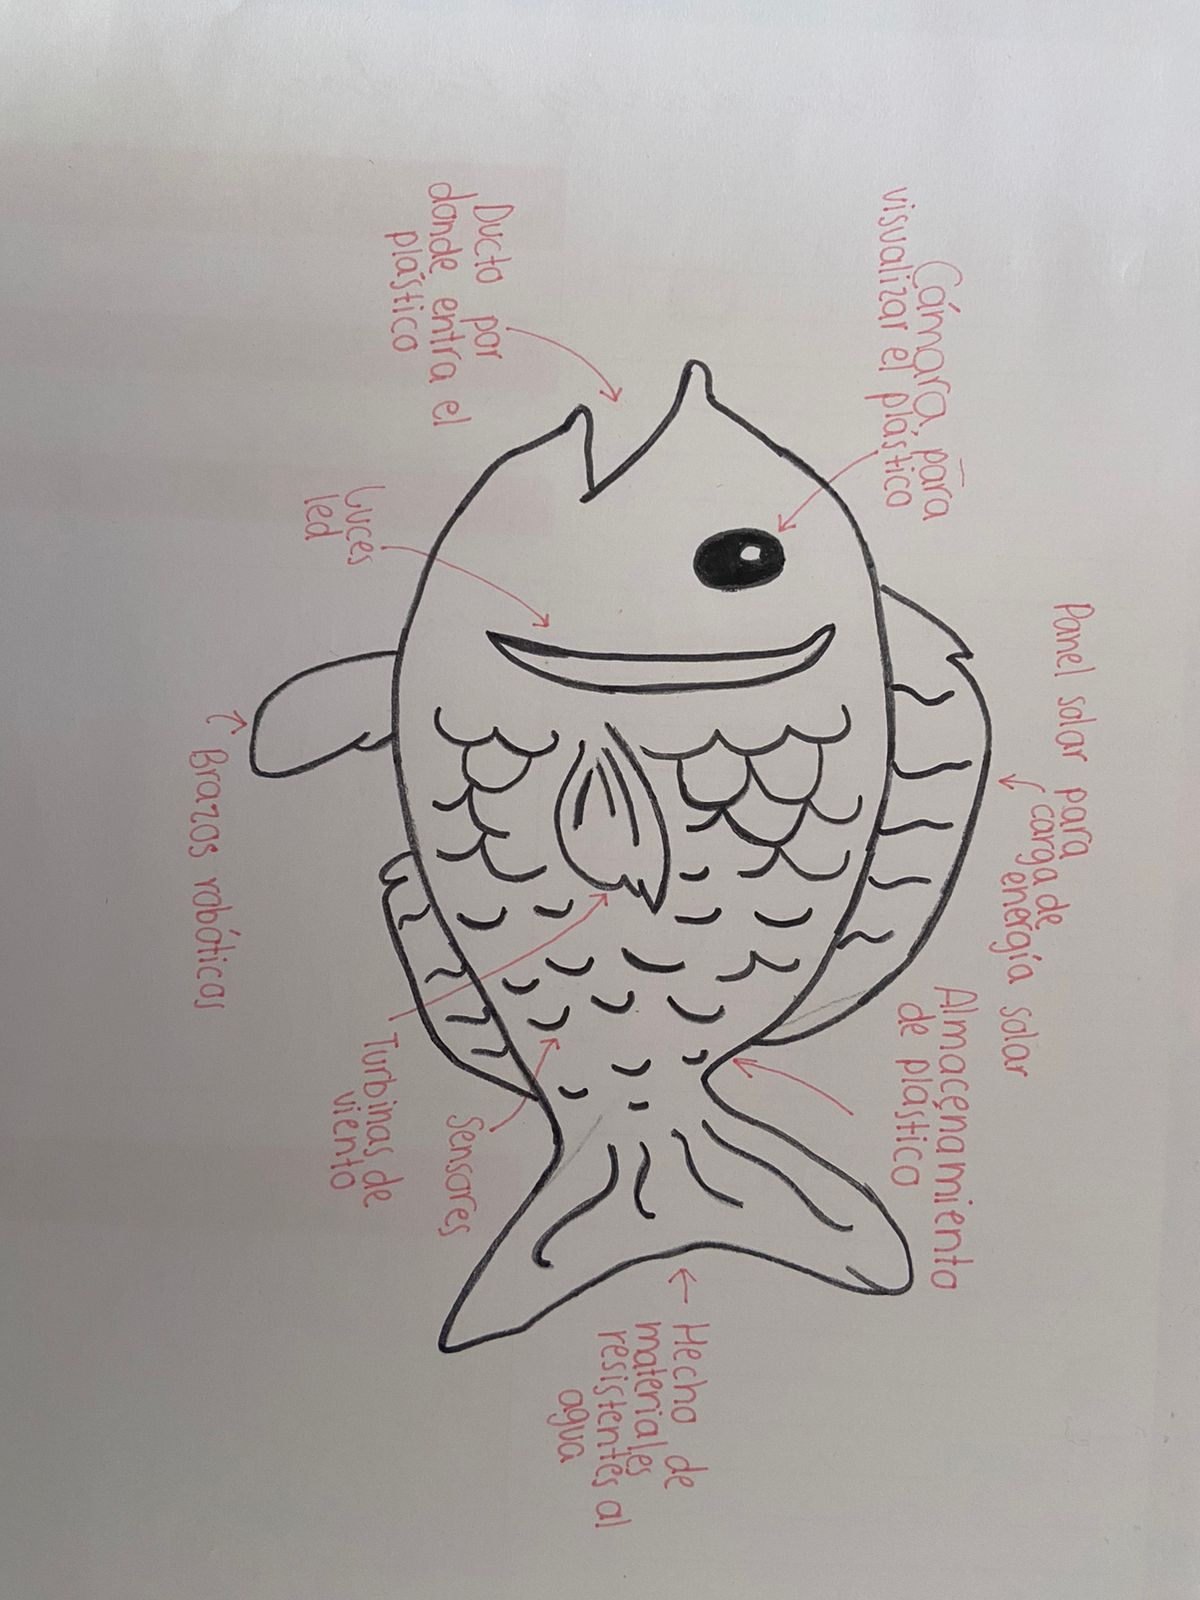 Panel solar para
carga de
energía solar
Cámara para
visualizar el plástico
Almacenamiento
de plástico
Hecho de
materiales
resistentes al
agua
Ducto por
donde entra el
plástico
Luces
led
Sensores
Turbinas de
viento
Brazos robóticos